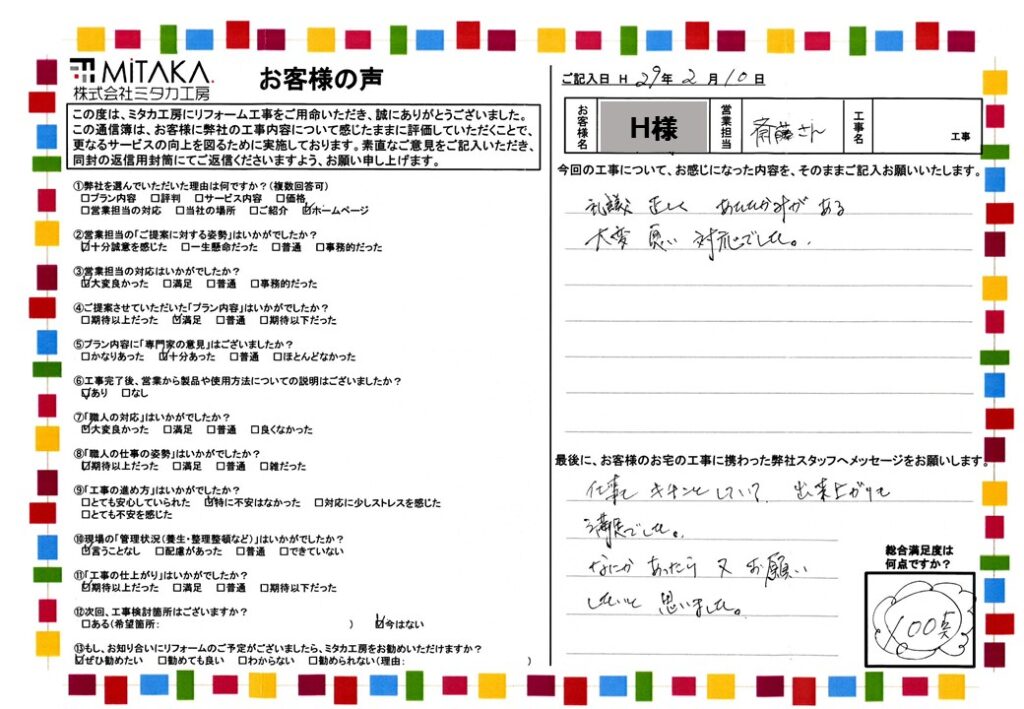 MiTAKA.
株式会社ミタカ工房
お客様の声
この度は、ミタカ工房にリフォーム工事をご用命いただき、誠にありがとうございました。
この通信簿は、お客様に弊社の工事内容について感じたままに評価していただくことで、
更なるサービスの向上を図るために実施しております。素直なご意見をご記入いただき、
同封の返信用封筒にてご返信くださいますよう、お願い申し上げます。
①弊社を選んでいただいた理由は何ですか?(複数回答可)
□プラン内容 □評判 □サービス内容 □価格
□営業担当の対応 □当社の場所 □ご紹介 ☑ホームページ
②営業担当の「ご提案に対する姿勢」はいかがでしたか?
☑十分誠意を感じた □一生懸命だった □普通 □事務的だった
③営業担当の対応はいかがでしたか?
☑大変良かった □満足 □普通 □事務的だった
④ご提案させていただいた「プラン内容」はいかがでしたか?
□期待以上だった ☑満足 □普通 □期待以下だった
⑤プラン内容に「専門家の意見」はございましたか?
□かなりあった ☑十分あった □普通 □ほとんどなかった
⑥工事完了後、営業から製品や使用方法についての説明はございましたか?
☑あり □なし
⑦「職人の対応」はいかがでしたか?
☑大変良かった □満足 □普通 □良くなかった
⑧「職人の仕事の姿勢」はいかがでしたか?
☑期待以上だった □満足 □普通 □雑だった
⑨「工事の進め方」はいかがでしたか?
□とても安心していられた ☑特に不安はなかった □対応に少しストレスを感じた
□とても不安を感じた
⑩現場の「管理状況(養生・整理整頓など)」はいかがでしたか?
☑言うことなし □配慮があった □普通 □できていない
⑪「工事の仕上がり」はいかがでしたか?
☑期待以上だった □満足 □普通 □期待以下だった
⑫次回、工事検討箇所はございますか?
□ある(希望箇所: ) ☑今はない
⑬もし、お知り合いにリフォームのご予定がございましたら、ミタカ工房をお勧めいただけますか?
☑ぜひ勧めたい □勧めても良い □わからない □勧められない(理由: )
ご記入日 H 29年 2月 10日
お客様名 H様 営業担当 斎藤さん 工事名 工事
今回の工事について、お感じになった内容を、そのままご記入お願いいたします。
礼儀 正しく あたたかみが ある
大変 良い 対応でした。
最後に、お客様のお宅の工事に携わった弊社スタッフへメッセージをお願いします。
仕事も キチンと していて 出来上がりも
満足でした。
なにか あったら 又 お願い
したいと 思いました。
総合満足度は
何点ですか?
100点